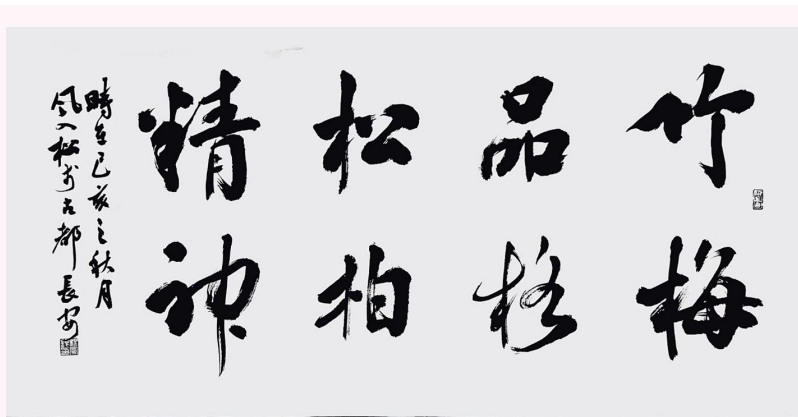 竹梅
品格
松柏
精神
時在己亥之秋月
風入松於古都長安